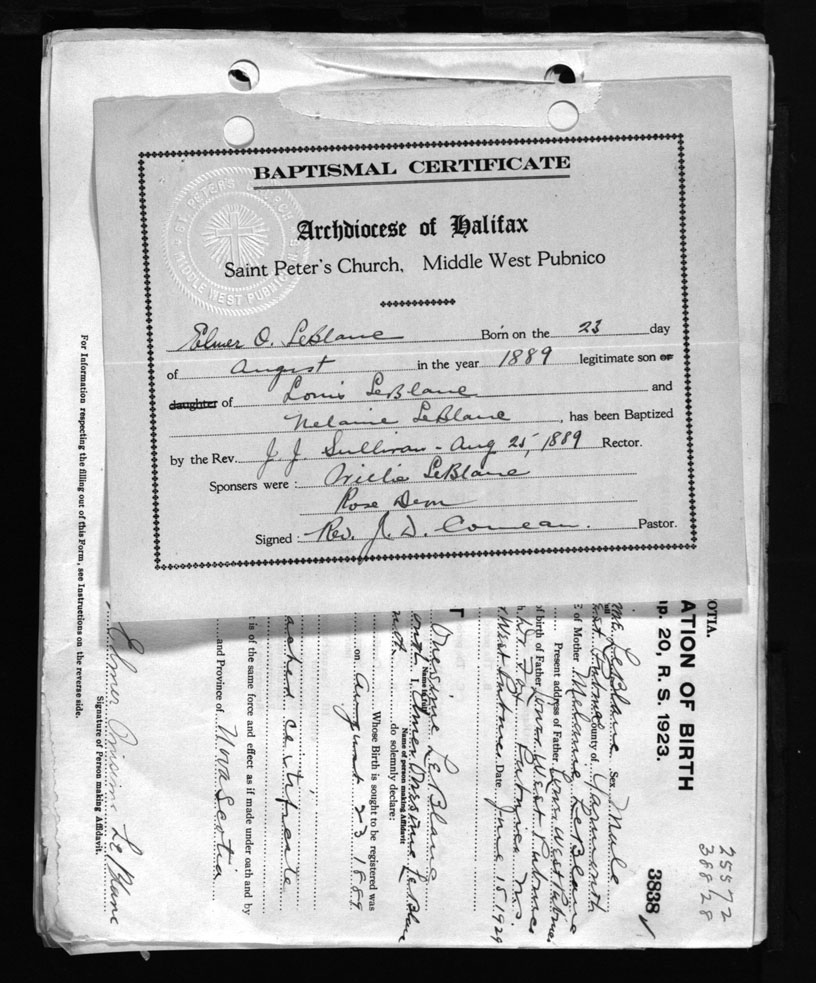 BAPTISMAL CERTIFICATE
Archdiocese of Halifax
Saint Peter's Church, Middle West Pubnico
ST. PETER'S CHURCH
MIDDLE WEST PUBNICO, N.S.
Elmer O. LeBlanc Born on the 23 day
of August in the year 1889 legitimate son or
daughter of Louis LeBlanc and
Melanie LeBlanc, has been Baptized
by the Rev. J. J. Sullivan - Aug 25, 1889 Rector.
Sponsers were: Willie LeBlanc
Rose
Signed: Rev. J. D. Comeau. Pastor.
OTIA.
ATION OF BIRTH
p. 20, R. S. 1923.
25572
38828
3838
LeBlanc Sex Male
West Pubnico County of Yarmouth
of Mother Melanie LeBlanc
Present address of Father Lower West Pubnico
of birth of Father Lower West Pubnico
Pubnico N.S.
West Pubnico Date June 15 1929
Onesime LeBlanc
Name in full
I, Elmer Onesime LeBlanc
Name of person making Affidavit
do solemnly declare:
Whose Birth is sought to be registered was
on August 23 1889
t is of the same force and effect as if made under oath and by
ached certificate
and Province of Nova Scotia
Elmer Onesime LeBlanc
Signature of Person making Affidavit.
For Information respecting the filling out of this Form, see Instructions on the reverse side.